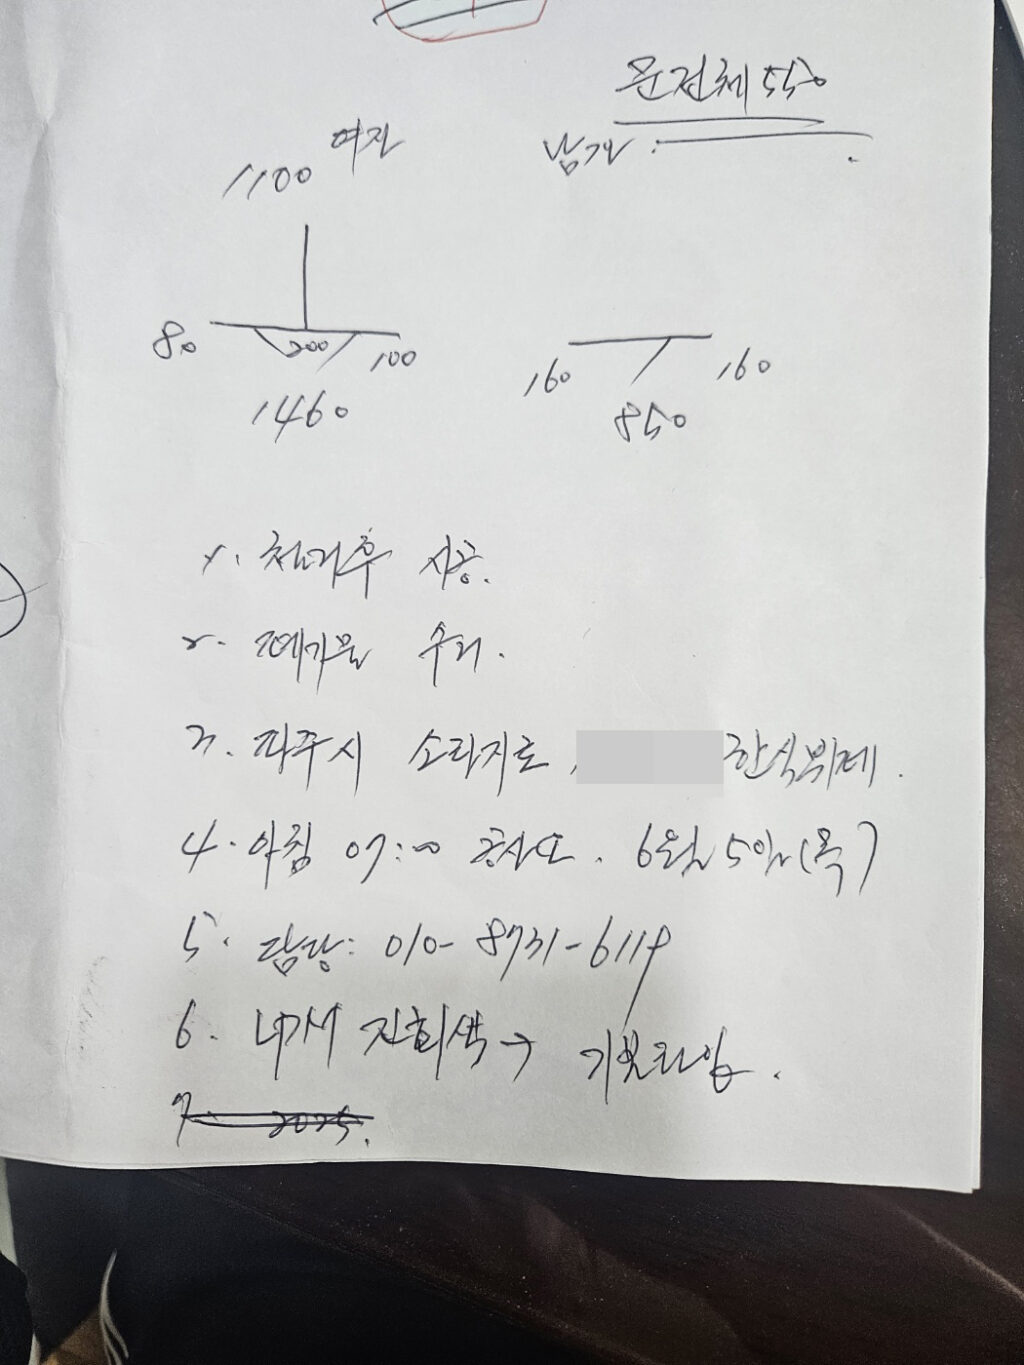 문전체 550
여자 남자
1100
80 200 100 160 160
1460 850
1. 철거후 시공.
2. 폐기물 수거.
3. 파주시 소라지로 한식뷔페.
4. 아침 07:00 공사. 6월 5일(목)
5. 담당: 010-8731-6119
6. 내가 진회색 →
7. 2025.